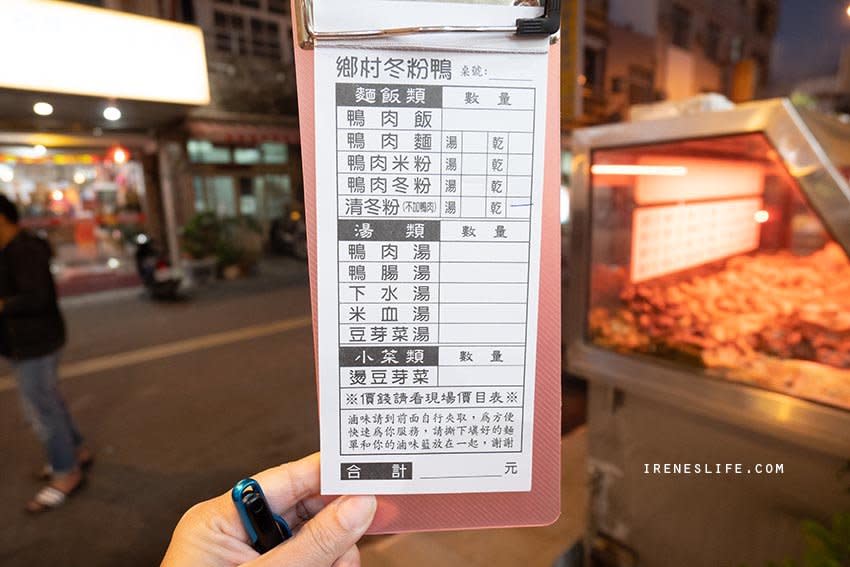 鄉村冬粉鴨 桌號:
麵飯類 數量
鴨肉飯
鴨肉麵 湯 乾
鴨肉米粉 湯 乾
鴨肉冬粉 湯 乾
清冬粉(不加鴨肉) 湯 乾
湯類 數量
鴨肉湯
鴨腸湯
下水湯
米血湯
豆芽菜湯
小菜類 數量
燙豆芽菜
※價錢請看現場價目表※
滷味請到前面自行夾取，為方便
快速為你服務，請撕下填好的麵
單和你的滷味籃放在一起，謝謝
合計 元
IRENESLIFE.COM